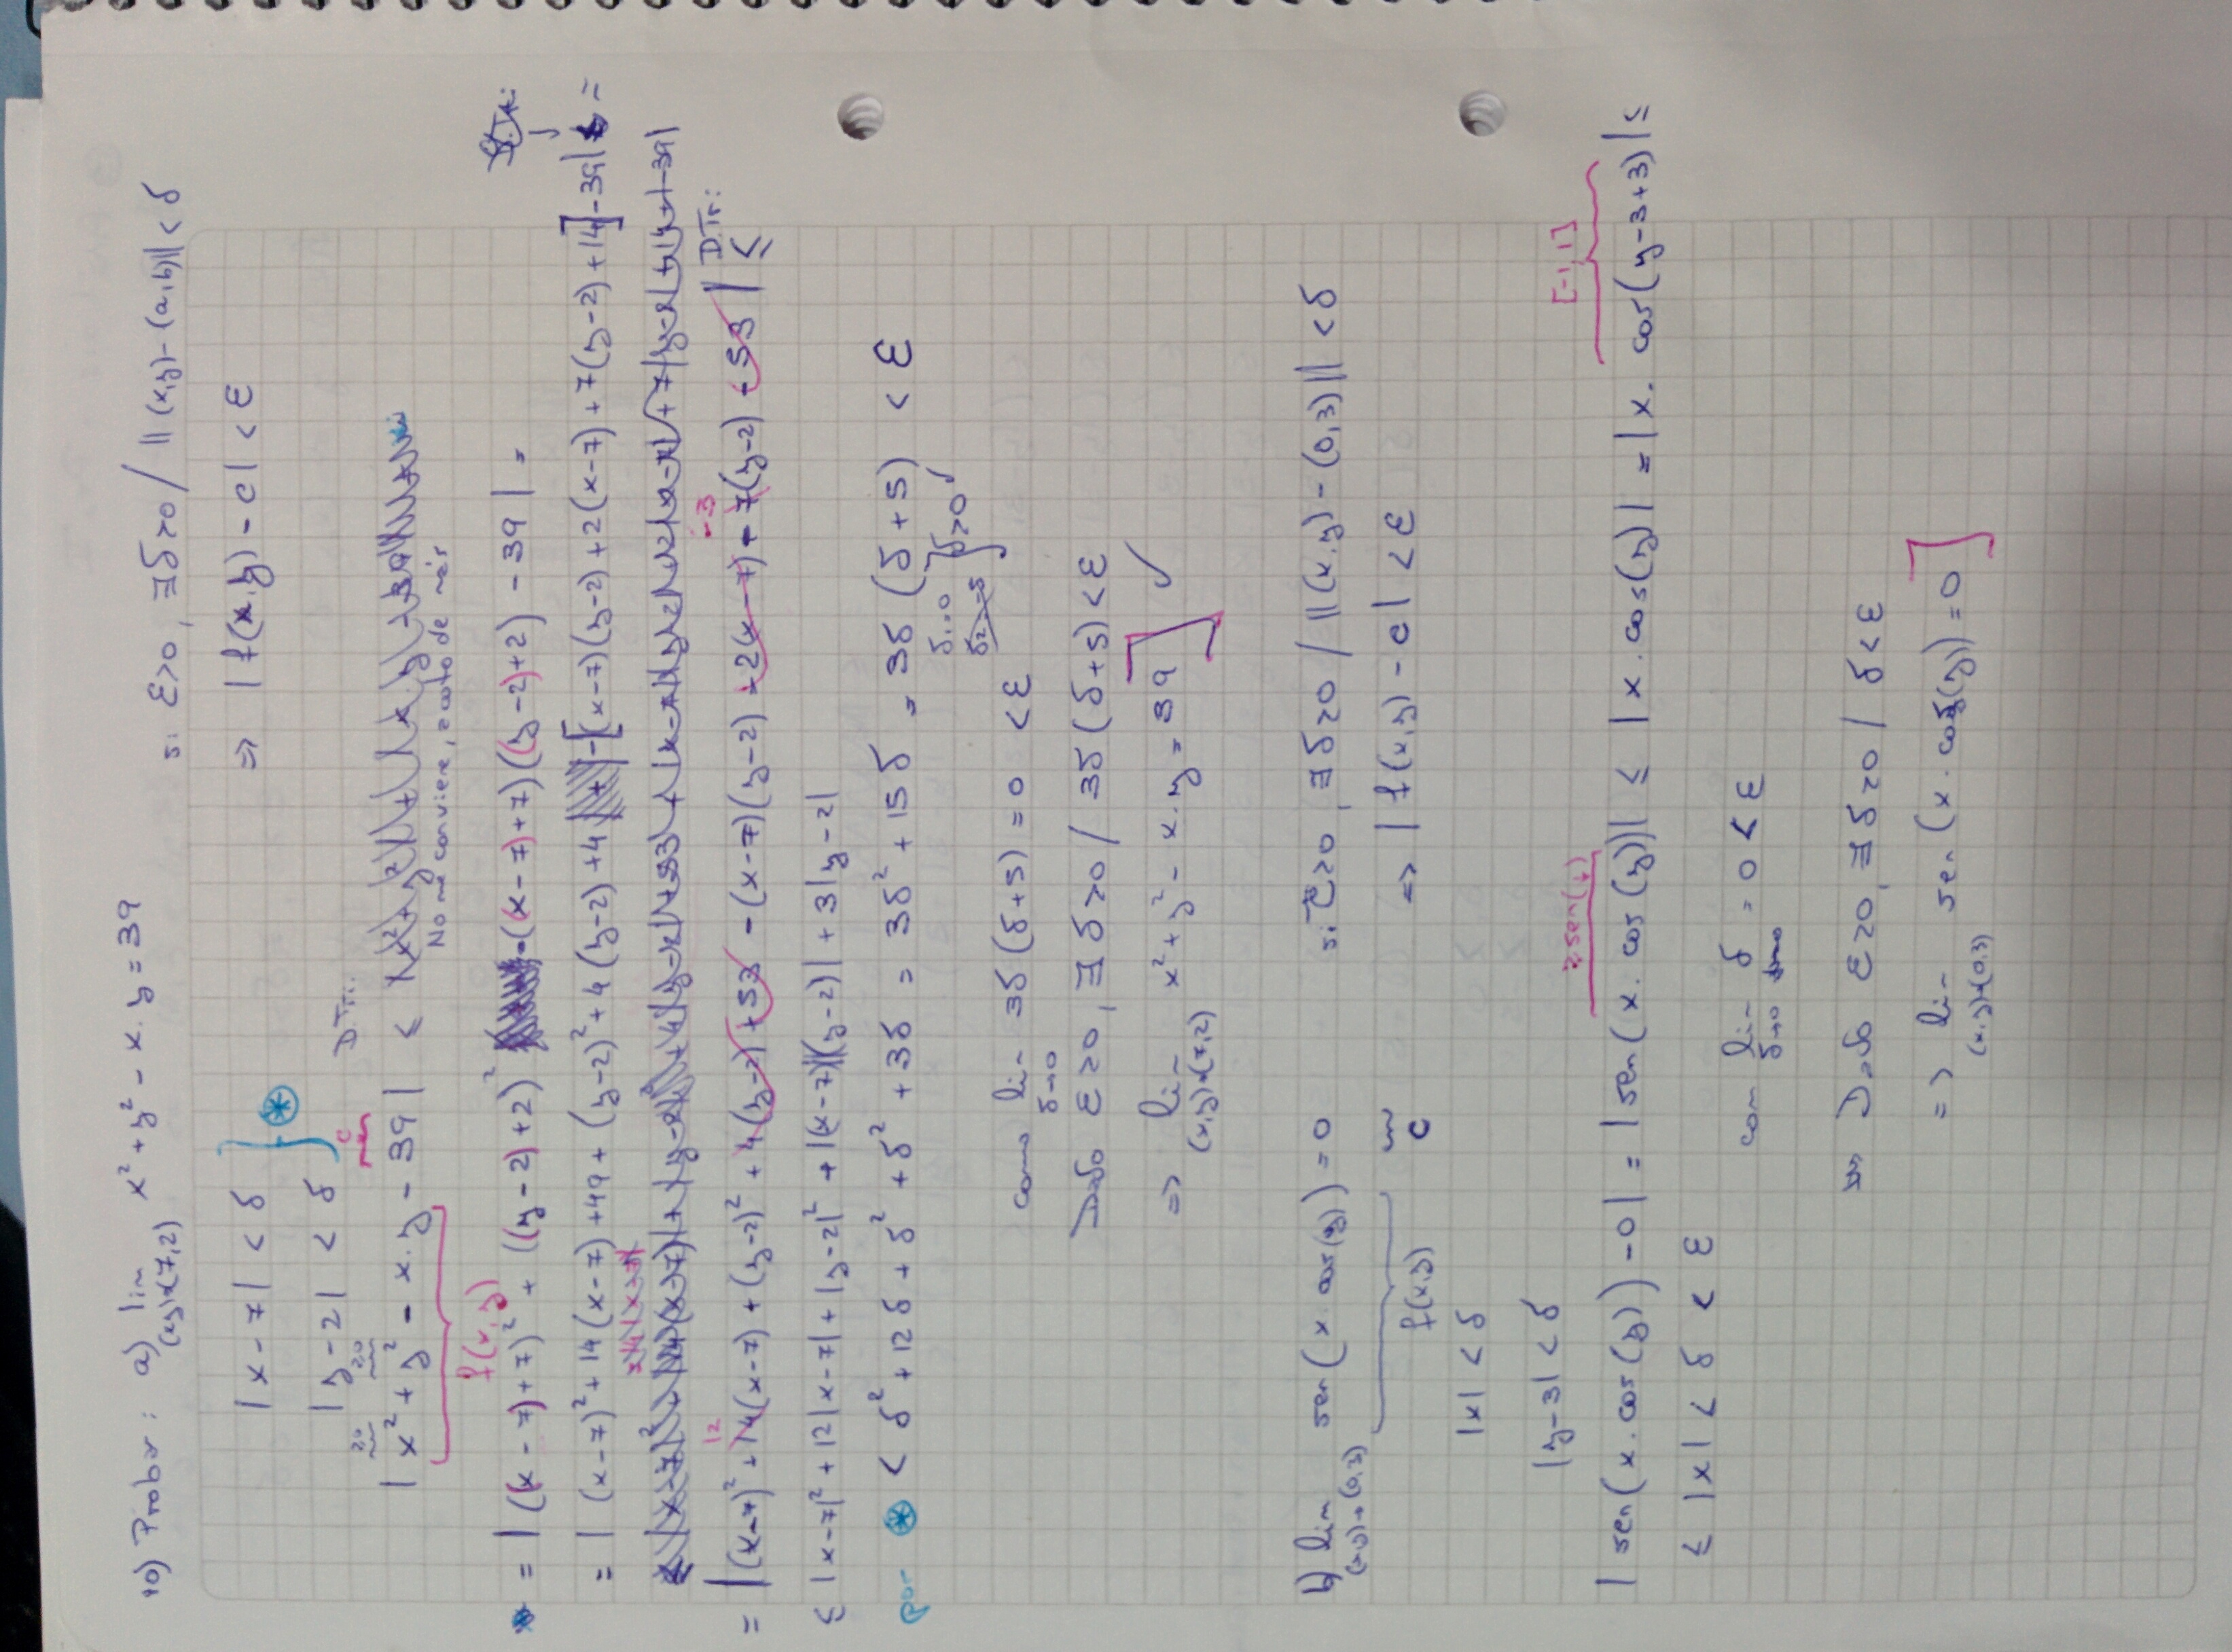 10) Probar: a) lim x² + y² - x.y = 39
(x,y)→(7,2)
si ε>0, ∃δ>0 / ||(x,y)-(a,b)|| < δ
⇒ |f(x,y) - c| < ε
|x-7| < δ
|y-2| < δ
≥0 ≥0 c D.Tri.
|x² + y² - x.y - 39| ≤
f(x,y)
No me conviene, acoto de más
= |((x-7)+7)² + ((y-2)+2)² - ((x-7)+7)((y-2)+2) - 39| =
= |(x-7)² + 14(x-7) + 49 + (y-2)² + 4(y-2) + 4 - [(x-7)(y-2) + 2(x-7) + 7(y-2) + 14] - 39| =
12 -3 D.Tri.
= |(x-7)² + 14(x-7) + (y-2)² + 4(y-2) + 53 - (x-7)(y-2) - 2(x-7) - 7(y-2) - 53| ≤
≤ |x-7|² + 12|x-7| + |y-2|² + |(x-7)||(y-2)| + 3|y-2|
por ⊛ < δ² + 12δ + δ² + δ² + 3δ = 3δ² + 15δ = 3δ(δ+5) < ε
δ>0 ✓
como lim 3δ(δ+5) = 0 < ε
δ→0
Dado ε>0, ∃δ>0 / 3δ(δ+5) < ε
⇒ lim x² + y² - x.y = 39 ] ✓
(x,y)→(7,2)
b) lim sen(x.cos(y)) = 0
(x,y)→(0,3)
f(x,y) c
si ε>0, ∃δ>0 / ||(x,y)-(0,3)|| < δ
⇒ |f(x,y) - c| < ε
|x| < δ
|y-3| < δ
≥sen(↓) [-1,1]
|sen(x.cos(y)) - 0| = |sen(x.cos(y))| ≤ |x.cos(y)| = |x.cos(y-3+3)| ≤
≤ |x| < δ < ε
com lim δ = 0 < ε
δ→0
Dado ε>0, ∃δ>0 / δ < ε
=> lim sen(x.cos(y)) = 0 ]
(x,y)→(0,3)